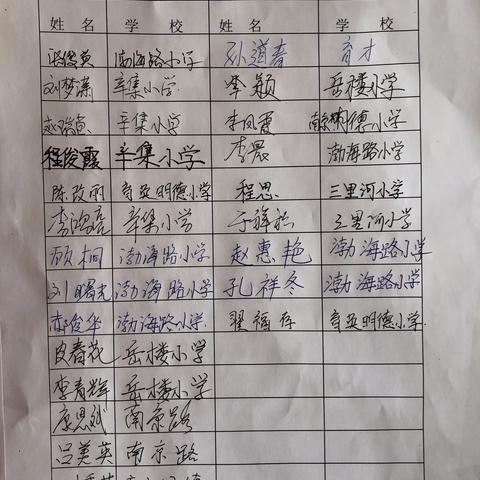 姓 名 学 校 姓 名 学 校
渤海路小学 孙道春 育才
刘梦潇 辛集小学 李颖 岳楼小学
辛集小学 李凤霞 明德小学
程俊霞 辛集小学 李晨 渤海路小学
陈改丽 奇亚明德小学 程思 三里河小学
李鸿亮 辛集小学 三里河小学
顾桐 渤海路小学 赵惠艳 渤海路小学
刘曙光 渤海路小学 孔祥冬 渤海路小学
郝俊华 渤海路小学 翟福存 奇亚明德小学
皮春花 岳楼小学
李青辉 岳楼小学
康思斌 南京路
吕美英 南京路